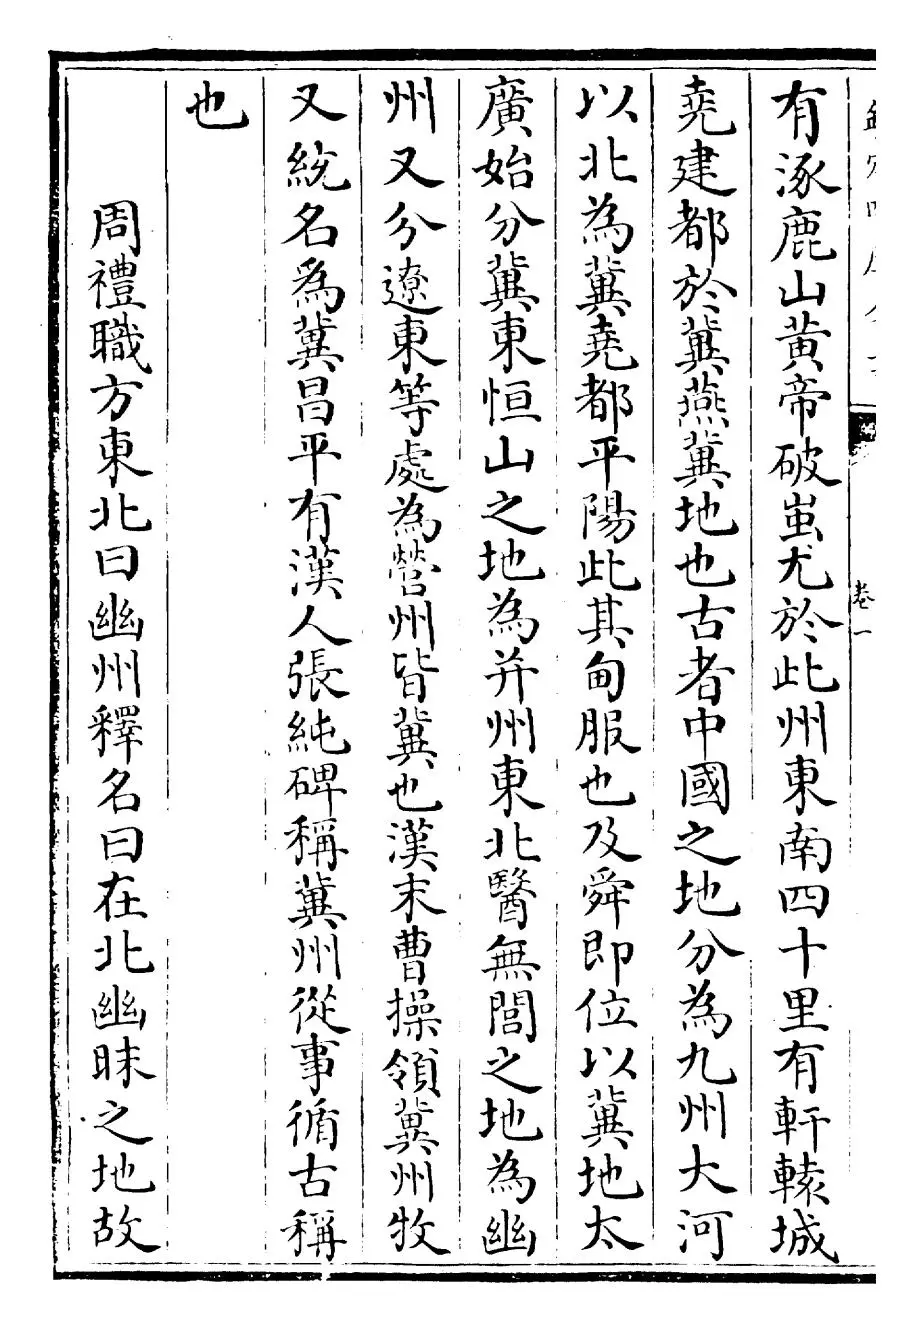 有涿鹿山黄帝破蚩尤於此州東南四十里有軒轅城
堯建都於冀燕冀地也古者中國之地分為九州大河
以北為冀堯都平陽此其甸服也及舜即位以冀地太
廣始分冀東恒山之地為并州東北醫無閭之地為幽
州又分遼東等處為營州皆冀也漢末曹操領冀州牧
又統名為冀昌平有漢人張純碑稱冀州從事循古稱
也
周禮職方東北曰幽州釋名曰在北幽昧之地故
卷一